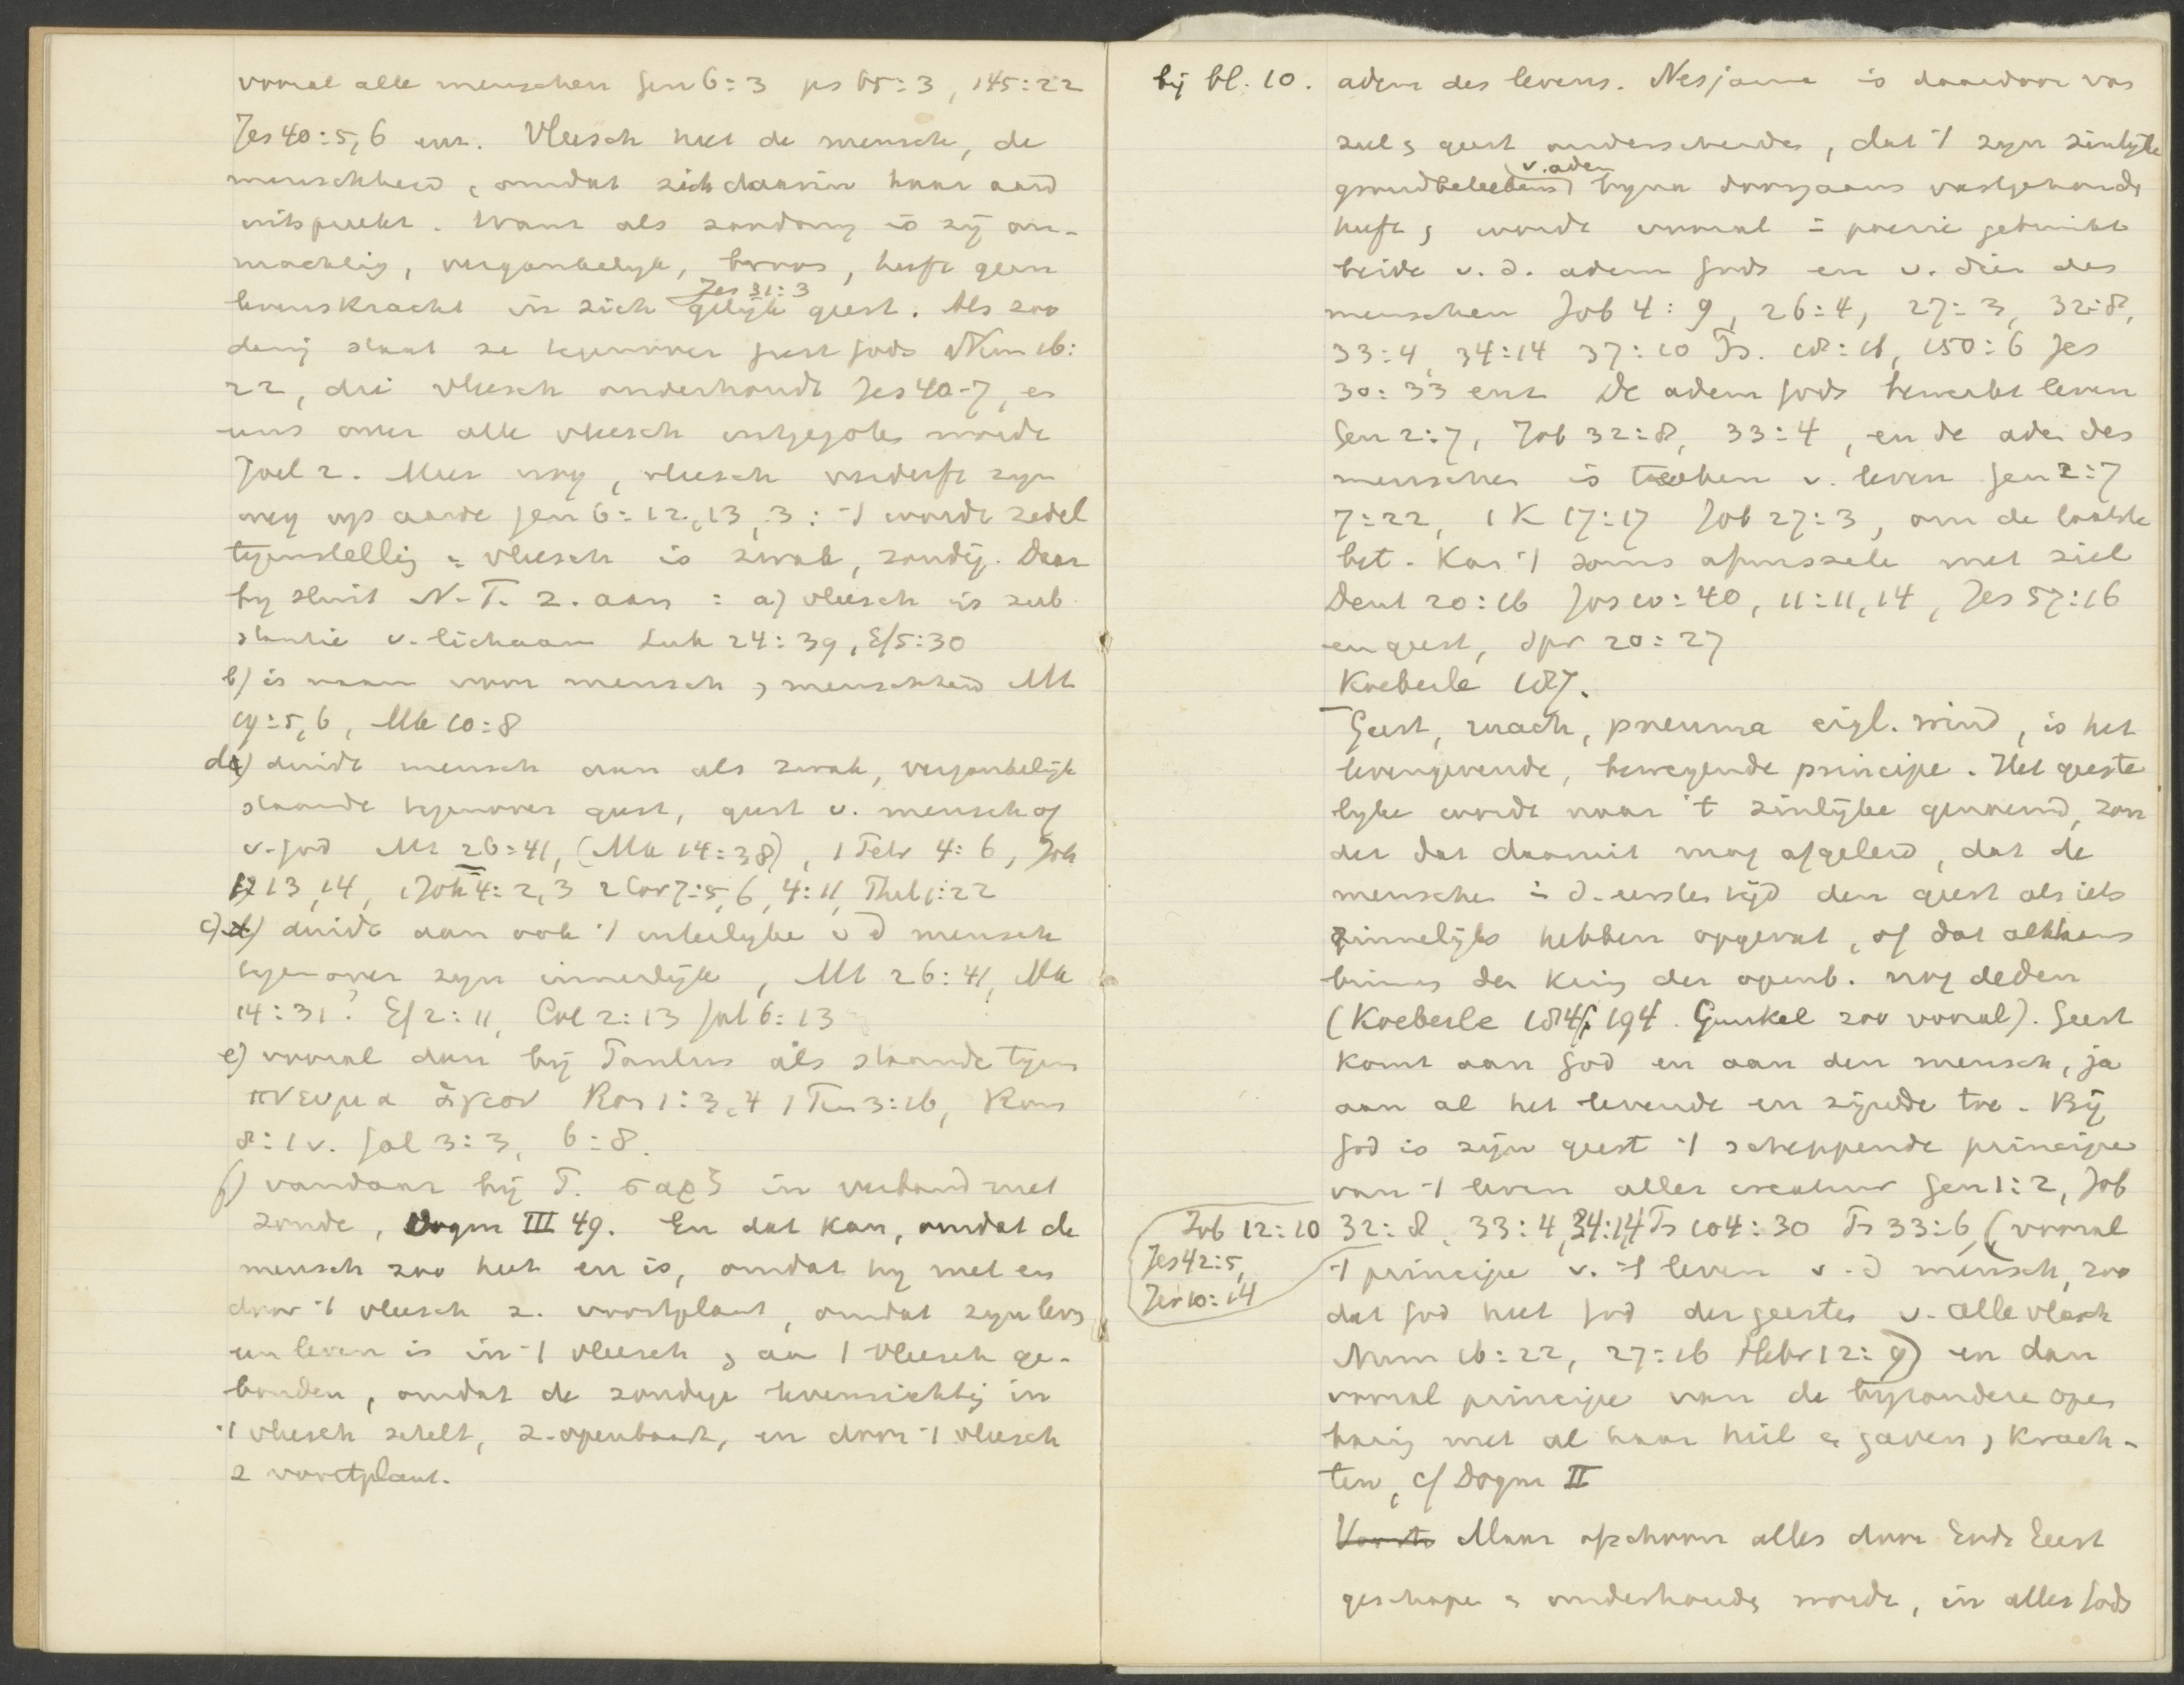 vooral alle menschen Gen 6:3 ps 65:3, 145:22
Jes 40:5,6 enz. Vleesch heet de mensch, de
menschheid, omdat zich daarin haar aard
uitspreekt. Want als zoodanig is zij on-
machtig, vergankelijk, broos, heeft geen
levenskracht in zich gelijk geest. Als zoo
Jes 31:3
danig staat ze tegenover geest Gods Num 16:
22, die vleesch onderhoudt Jes 40-7, en
eens over alle vleesch uitgegoten wordt
Joel 2. Meer nog, vleesch verderft zyn
weg op aarde Gen 6:12,13,3: 't wordt zedel
tegenstellig = vleesch is zwak, zondig. Daar
by sluit N.T. z. aan: a) vleesch is sub
stantie v. lichaam Luk 24:39, Ef 5:30
b) is naam voor mensch, menschheid Mt
19:5,6, Mk 10:8
d) duidt mensch aan als zwak, vergankelijk
staande tegenover geest, geest v. mensch of
v. God Mt 26:41, (Mk 14:38), 1 Petr 4:6, Joh
13,14, 1 Joh 4:2,3 2 Cor 7:5,6, 4:11,
c) duidt aan ook 't uiterlyke v d mensch
tegenover zyn innerlijk, Mt 26:41, Mk
14:31? Ef 2:11, Col 2:13 Gal 6:13
e) vooral dan bij Paulus als staande tegen
πνευμα ἁγιον Rom 1:3,4 1 Tim 3:16, Rom
8:1v. Gal 3:3, 6:8.
f) vandaar bij P. σαρξ in verband met
zonde, Dogm III 49. En dat kan, omdat de
mensch zoo heet en is, omdat hy met en
door 't vleesch z. voortplant, omdat zyn leven
een leven is in 't vleesch, aan 't vleesch ge-
bonden, omdat de zondige levensrichtig in
't vleesch zetelt, z. openbaart, en door 't vleesch
z voortplant.
bij bl. 10. adem des levens. Nesjama is daardoor van
ziel, geest onderscheiden, dat 't zyn zinlijke
v. adem
grondbeteekenis byna doorgaans vastgehouden
heeft, wordt vooral = poezie gebruikt
beide v. d. adem Gods en v. dien des
menschen Job 4:9, 26:4, 27:3, 32:8,
33:4, 34:14 37:10 Ps. 18:16, 150:6 Jes
30:33 enz De adem Gods bewerkt leven
Gen 2:7, Job 32:8, 33:4, en de adem des
menschen is teeken v. leven Gen 2:7
7:22, 1 K 17:17 Job 27:3, om de laatste
bet. kan 't soms afwisselen met ziel
Deut 20:16 Jos 10:40, 11:11,14, Jes 57:16
en geest, Spr 20:27
Koeberle 187.
Geest, ruach, pneuma eigl. wind, is het
levengevende, bewegende principe. Het geeste
lyke wordt naar 't zinlijke genoemd, zon
der dat daaruit mag afgeleid, dat de
menschen in d. eersten tijd den geest als iets
zinnelijks hebben opgevat, of dat althans
binnen den kring der openb. nog deden
(Koeberle 184, 194. Gunkel zoo vooral). Geest
komt aan God en aan den mensch, ja
aan al het levende en zijnde toe. Bij
God is zijn geest 't scheppende principe
van 't leven aller creatuur Gen 1:2, Job
Job 12:10
Jes 42:5,
Jer 10:14
32:8, 33:4, 34:14, Ps 104:30 Ps 33:6, (vooral
't principe v. 't leven v. d mensch, zoo
dat God heet God der geesten v. alle vlesch
Num 16:22, 27:16 Hebr 12:9) en dan
vooral principe van de byzondere open
baring met al haar heil en gaven, krach-
ten, cf Dogm II
Voorts Maar ofschoon alles door Gods Geest
geschapen en onderhouden wordt, in alles Gods